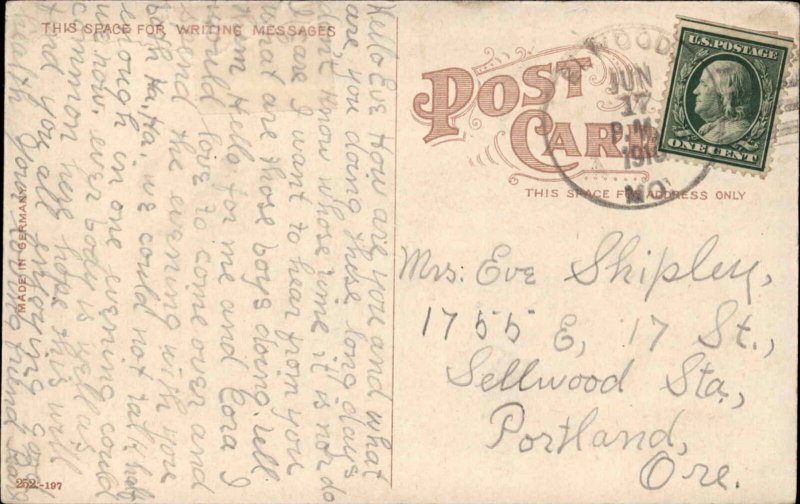 THIS SPACE FOR WRITING MESSAGES
Hello Eve How are you and what
are you doing these long days
I dont know whose time it is nor do
I care I want to hear from you
what are those boys doing. tell
them Hello for me and Cora I
would love to come over and
spend the evening with you
both Ha, Ha, we could not talk half
enough in one evening could
we now. ever body is well as
common here hope this will
find you all enjoying good
health your loving friend
MADE IN GERMANY
252.-197
POST
CARD
THIS SPACE FOR ADDRESS ONLY
WOOD
JUN
17
P.M.
1910
MO.
U.S. POSTAGE
ONE CENT
Mrs. Eve Shipley,
1755 E, 17 St.,
Sellwood Sta,
Portland,
Ore.